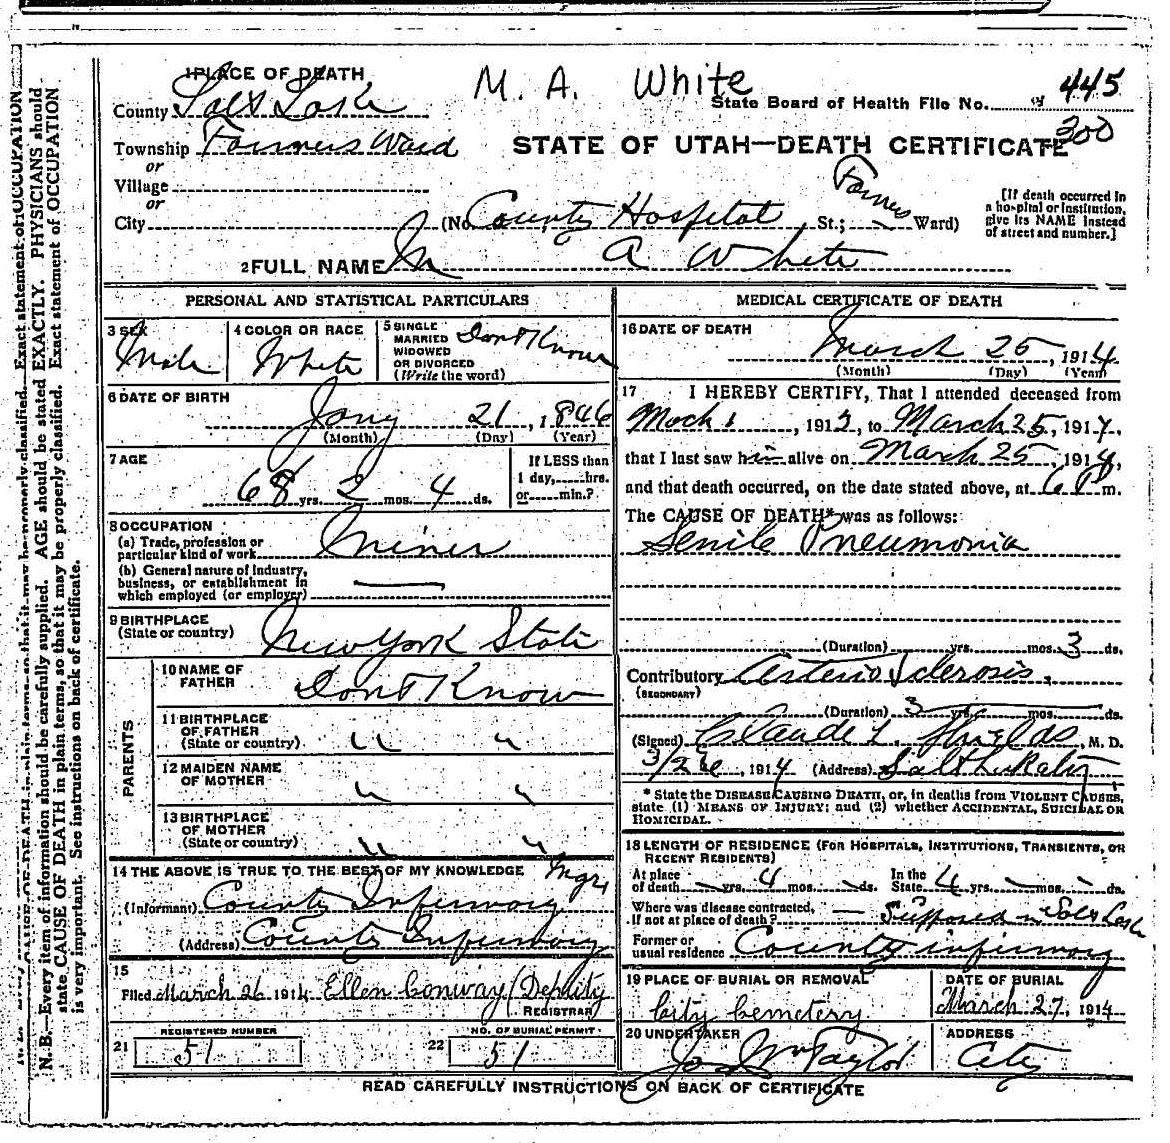 1 PLACE OF DEATH
M. A. White
County Salt Lake
State Board of Health File No. 445
300
Township Farmers Ward
STATE OF UTAH—DEATH CERTIFICATE
or
Village
or
City
(No. County Hospital St.; Farmers Ward)
[If death occurred in
a hospital or institution,
give its NAME instead
of street and number.]
2 FULL NAME M A White
PERSONAL AND STATISTICAL PARTICULARS
3 SEX
Male
4 COLOR OR RACE
White
5 SINGLE
MARRIED
WIDOWED
OR DIVORCED
(Write the word)
Dont Know
6 DATE OF BIRTH
Jany 21, 1846
(Month) (Day) (Year)
7 AGE
68 yrs. 2 mos. 4 ds.
If LESS than
1 day,......hrs.
or......min.?
8 OCCUPATION
(a) Trade, profession or
particular kind of work Miner
(b) General nature of industry,
business, or establishment in
which employed (or employer)
9 BIRTHPLACE
(State or country) New York State
PARENTS
10 NAME OF
FATHER Dont Know
11 BIRTHPLACE
OF FATHER
(State or country) " "
12 MAIDEN NAME
OF MOTHER " "
13 BIRTHPLACE
OF MOTHER
(State or country) " "
14 THE ABOVE IS TRUE TO THE BEST OF MY KNOWLEDGE
(Informant) County Infirmary Mgr
(Address) County Infirmary
15
Filed March 26 1914 Ellen Conway (Deputy
REGISTRAR
REGISTERED NUMBER
21 51
NO. OF BURIAL PERMIT
22 51
MEDICAL CERTIFICATE OF DEATH
16 DATE OF DEATH
March 25, 1914
(Month) (Day) (Year)
17 I HEREBY CERTIFY, That I attended deceased from
1, 1913, to March 25, 1914,
that I last saw him alive on March 25, 1914,
and that death occurred, on the date stated above, at 6 P m.
The CAUSE OF DEATH* was as follows:
Senile Pneumonia
(Duration) yrs. mos. 3 ds.
Contributory Arterio Sclerosis
(SECONDARY)
(Duration) 3 yrs. mos. ds.
(Signed) Claude L. Shields, M. D.
3/26, 1914 (Address) Salt Lake City
* State the DISEASE CAUSING DEATH, or, in deaths from VIOLENT CAUSES,
state (1) MEANS OF INJURY; and (2) whether ACCIDENTAL, SUICIDAL OR
HOMICIDAL.
18 LENGTH OF RESIDENCE (FOR HOSPITALS, INSTITUTIONS, TRANSIENTS, OR
RECENT RESIDENTS)
At place
of death yrs. 4 mos. ds.
In the
State 4 yrs. mos. ds.
Where was disease contracted,
if not at place of death? — Supposed in Salt Lake
Former or
usual residence County infirmary
19 PLACE OF BURIAL OR REMOVAL
City Cemetery
DATE OF BURIAL
March 27, 1914
20 UNDERTAKER
Jos Wm Taylor
ADDRESS
City
READ CAREFULLY INSTRUCTIONS ON BACK OF CERTIFICATE
N. B.—Every item of information should be carefully supplied. AGE should be stated EXACTLY. PHYSICIANS should
state CAUSE OF DEATH in plain terms, so that it may be properly classified. Exact statement of OCCUPATION
is very important. See instructions on back of certificate.